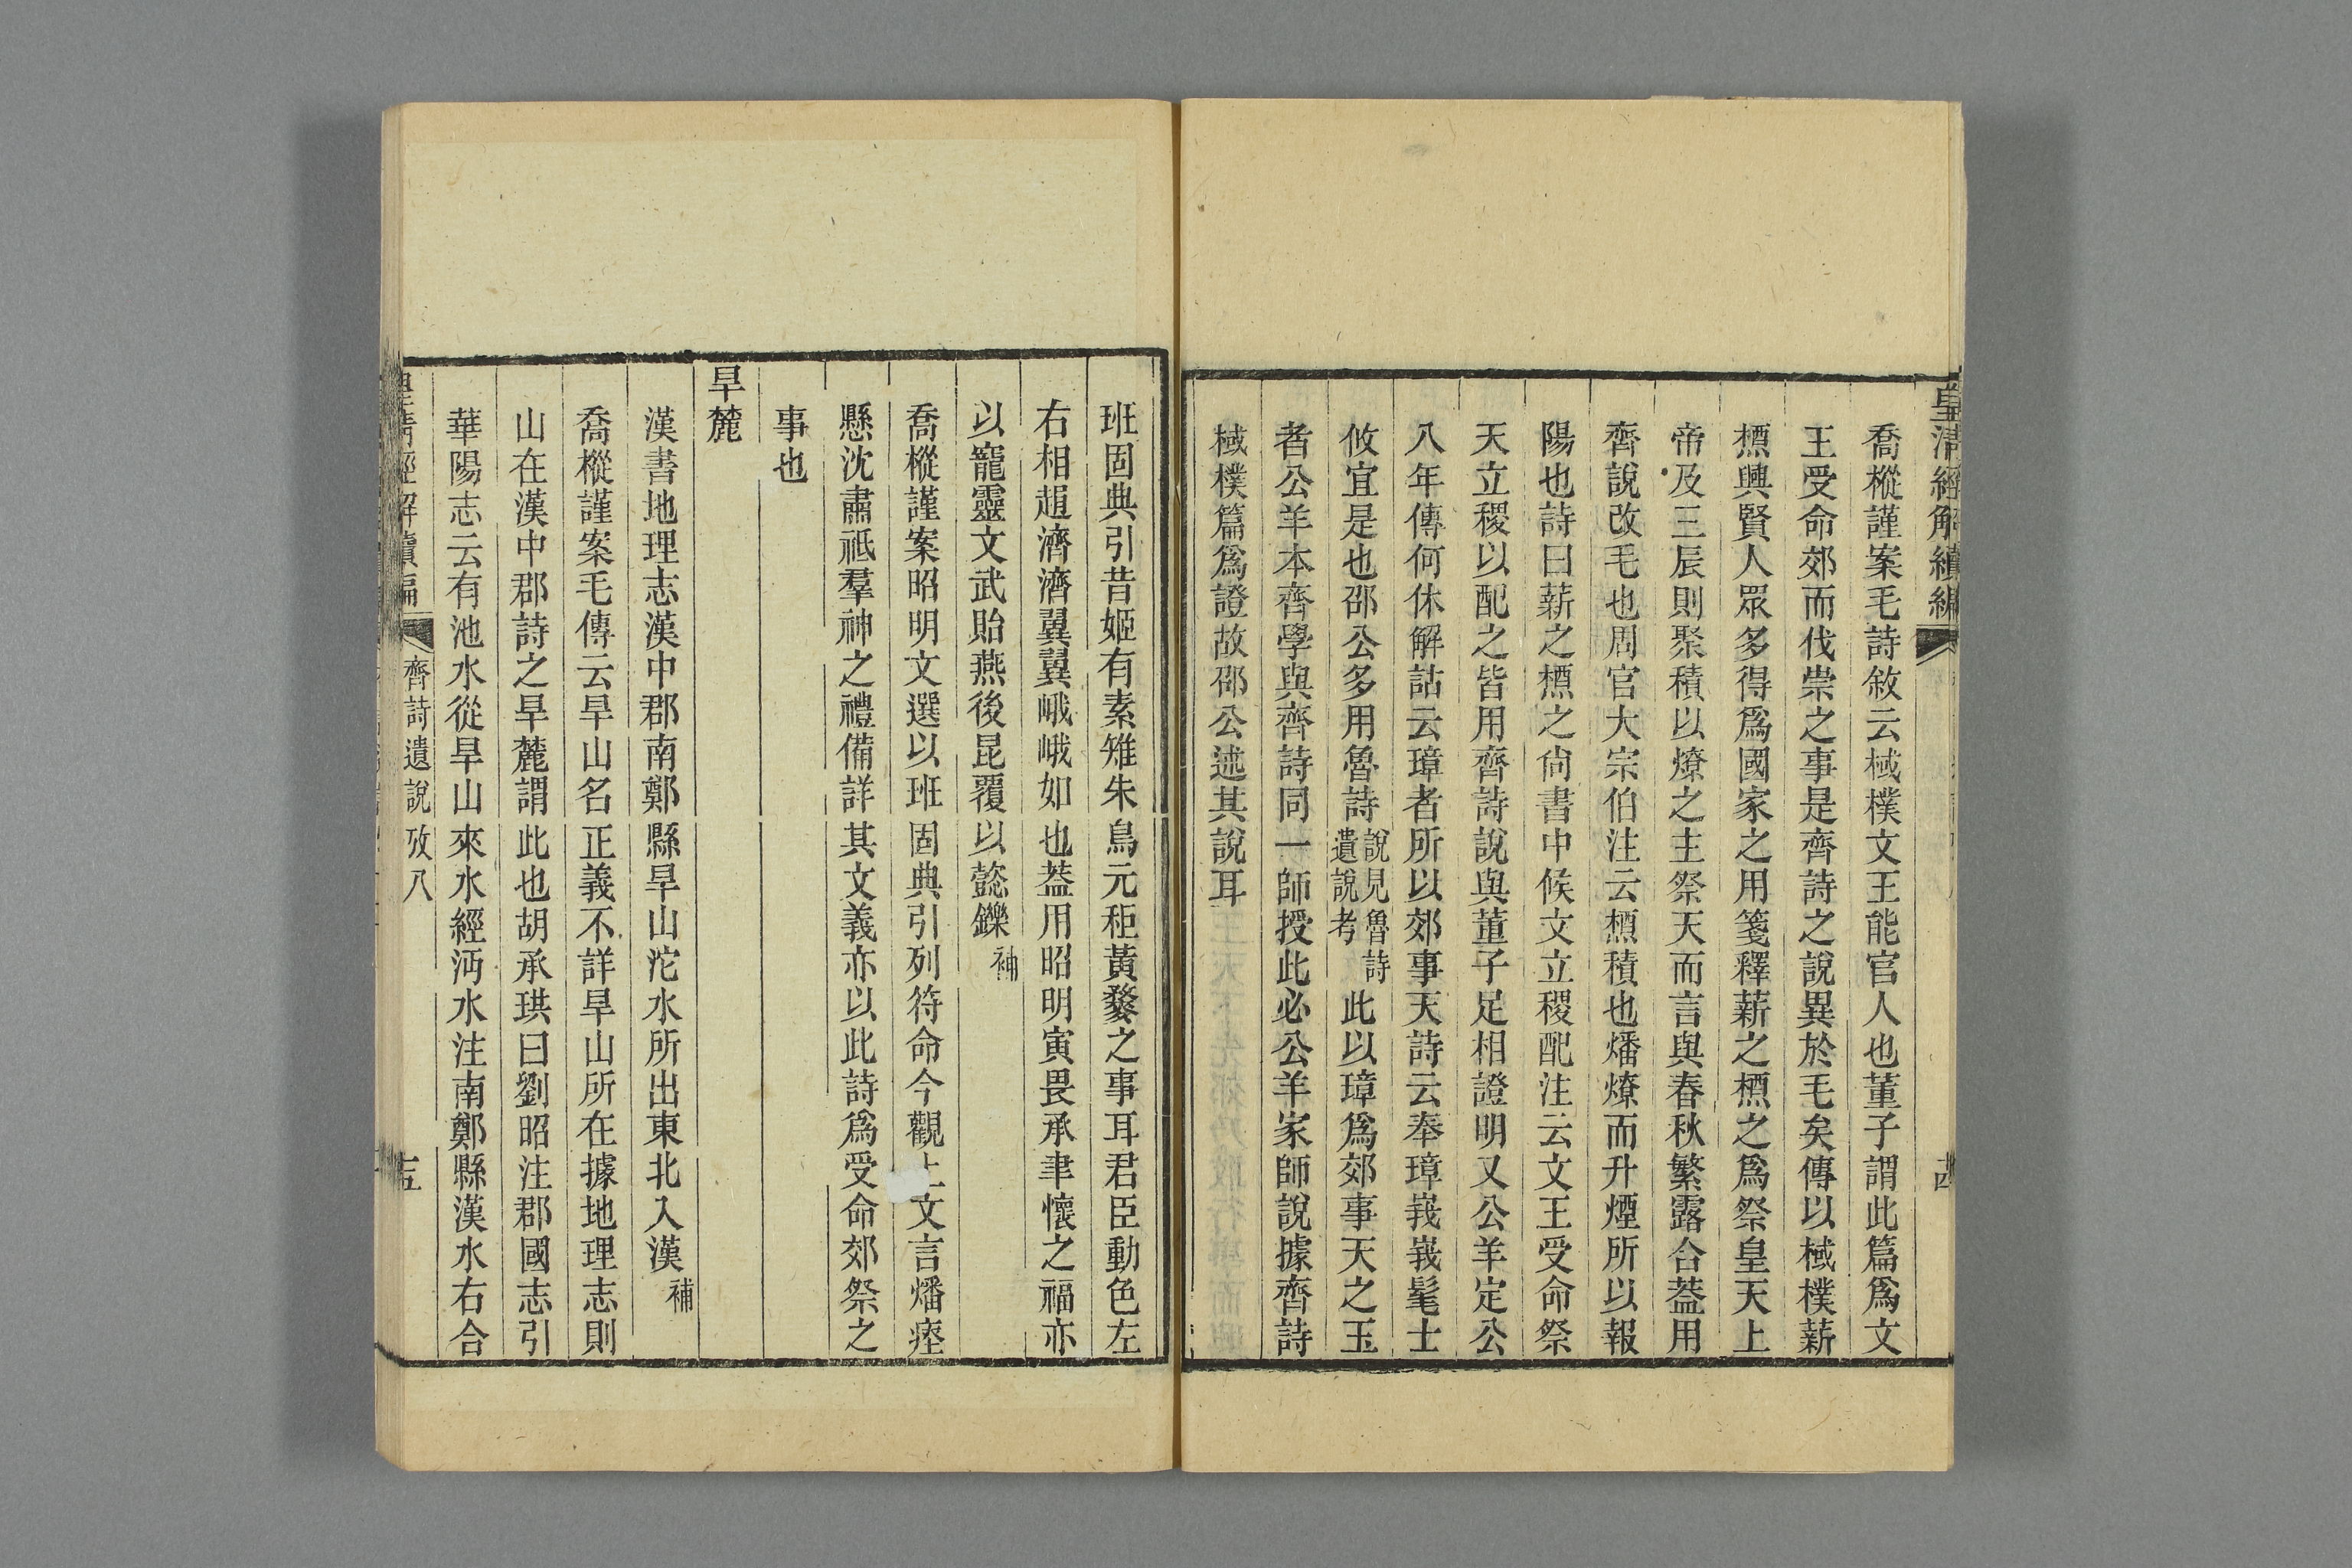 皇清經解續編
喬樅謹案毛詩敘云棫樸文王能官人也董子謂此篇爲文
王受命郊而伐崇之事是齊詩之說異於毛矣傳以棫樸薪
槱興賢人眾多得爲國家之用箋釋薪之槱之爲祭皇天上
帝及三辰則聚積以燎之主祭天而言與春秋繁露合蓋用
齊說改毛也周官大宗伯注云槱積也燔燎而升煙所以報
陽也詩曰薪之槱之尙書中候文立稷配注云文王受命祭
天立稷以配之皆用齊詩說與董子足相證明又公羊定公
八年傳何休解詁云璋者所以郊事天詩云奉璋峩峩髦士
攸宜是也邵公多用魯詩說見魯詩遺說考此以璋爲郊事天之玉
者公羊本齊學與齊詩同一師授此必公羊家師說據齊詩
棫樸篇爲證故邵公述其說耳
班固典引昔姬有素雉朱鳥元秬黃麰之事耳君臣動色左
右相趨濟濟翼翼峨峨如也蓋用昭明寅畏承聿懷之福亦
以寵靈文武貽燕後昆覆以懿鑠補
喬樅謹案昭明文選以班固典引列符命今觀上文言燔瘞
懸沈肅祗羣神之禮備詳其文義亦以此詩爲受命郊祭之
事也
旱麓
漢書地理志漢中郡南鄭縣旱山沱水所出東北入漢補
喬樅謹案毛傳云旱山名正義不詳旱山所在據地理志則
山在漢中郡詩之旱麓謂此也胡承珙曰劉昭注郡國志引
華陽志云有池水從旱山來水經沔水注南鄭縣漢水右合
皇清經解續編 齊詩遺說攷八 十五